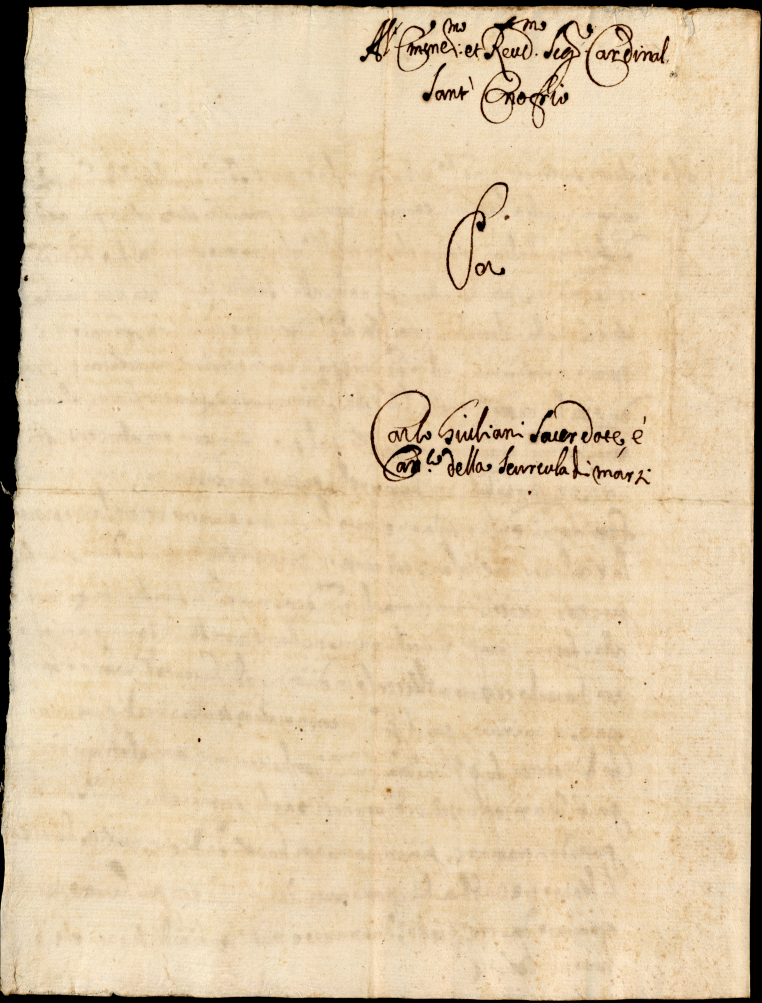 All' Emin.mo et Reud.mo Sig.re Cardinal
Sant' Onofrio
Per
Carlo Giuliani Sacerdote, é
Can.co della Scurcula di marzi